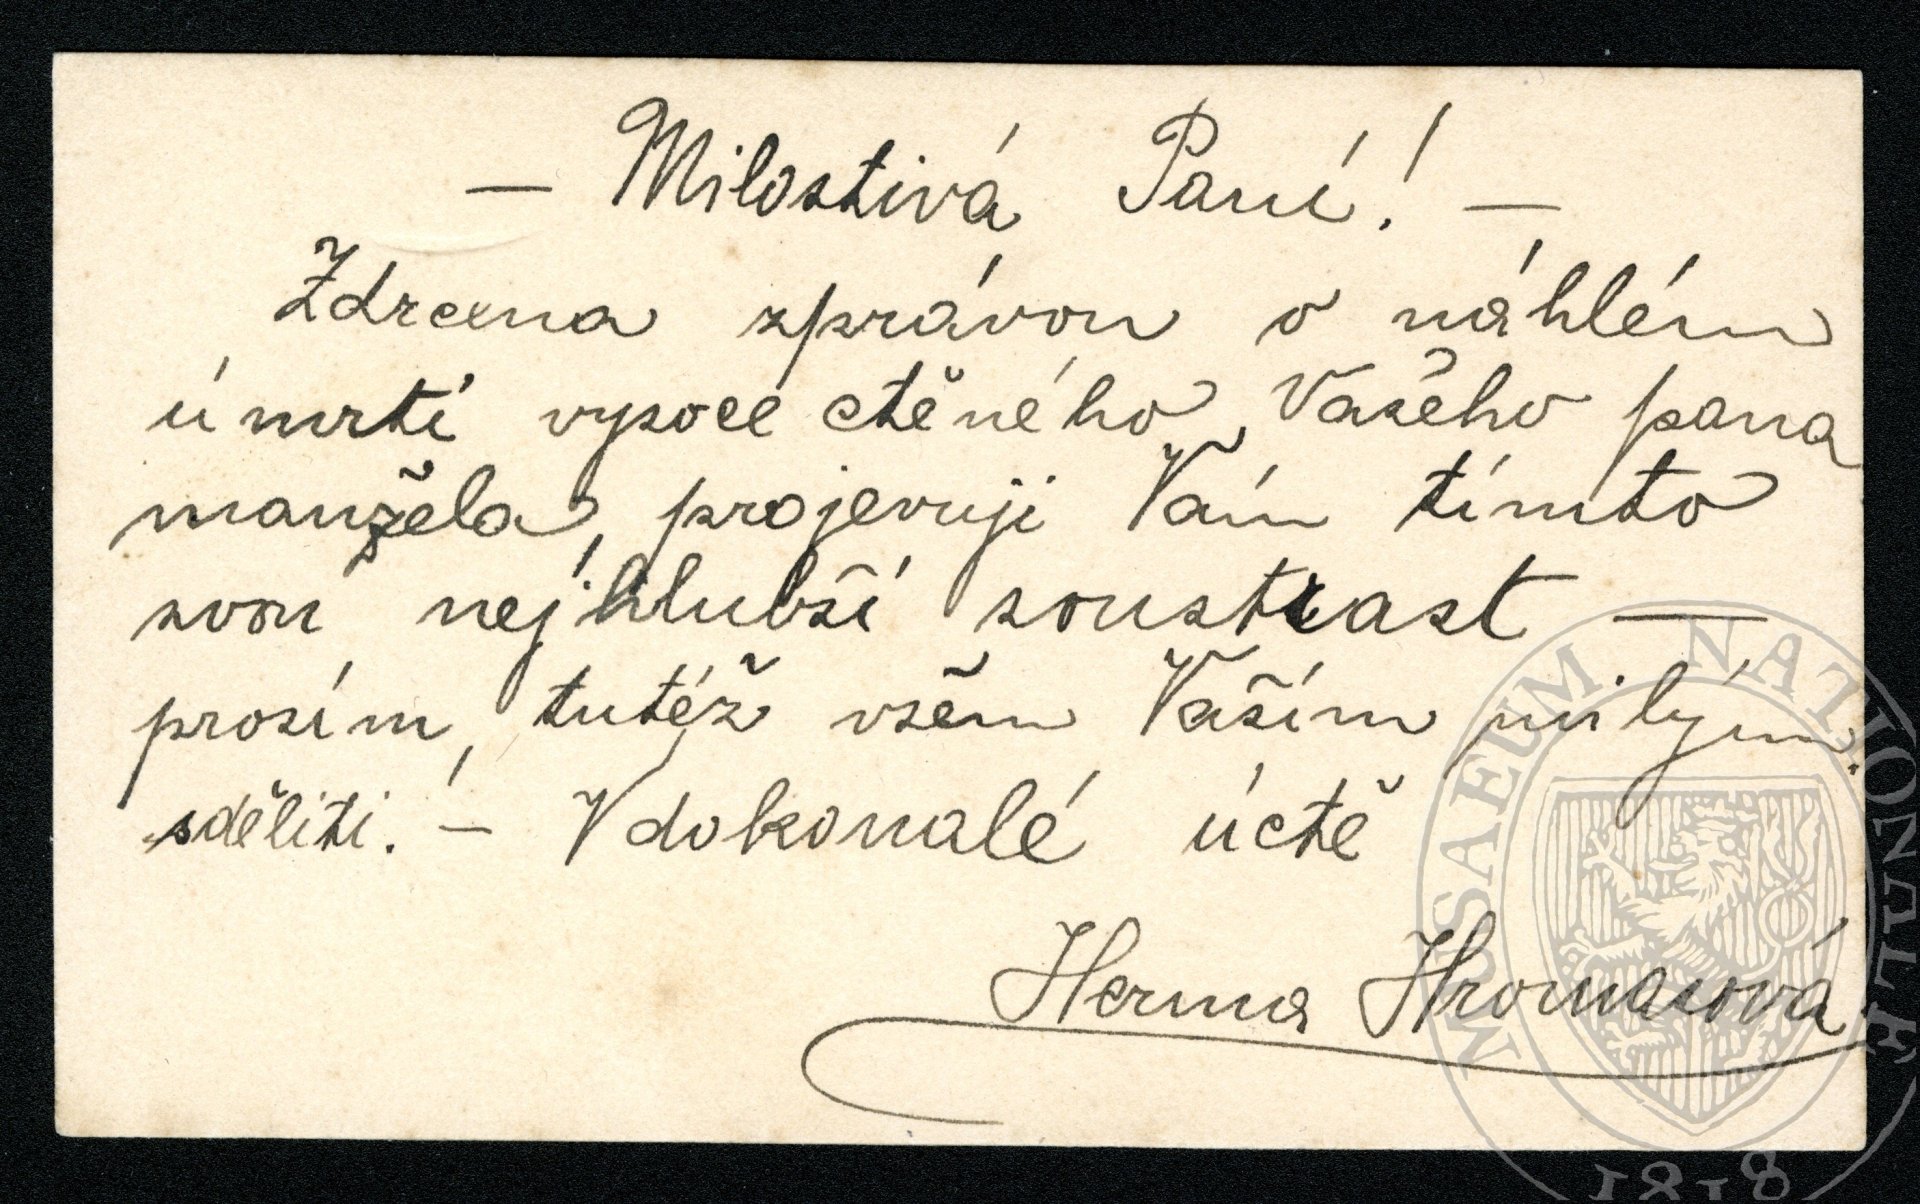 — Milostivá Paní! —
Zdrcena zprávou o náhlém
úmrtí vysoce ctěného Vašeho pana
manžela, projevuji Vám tímto
svou nejhlubší soustrast —
prosím, tutéž všem Vaším milým
sděliti. — V dokonalé úctě
Herma
MUSAEUM NATIONALE
1818